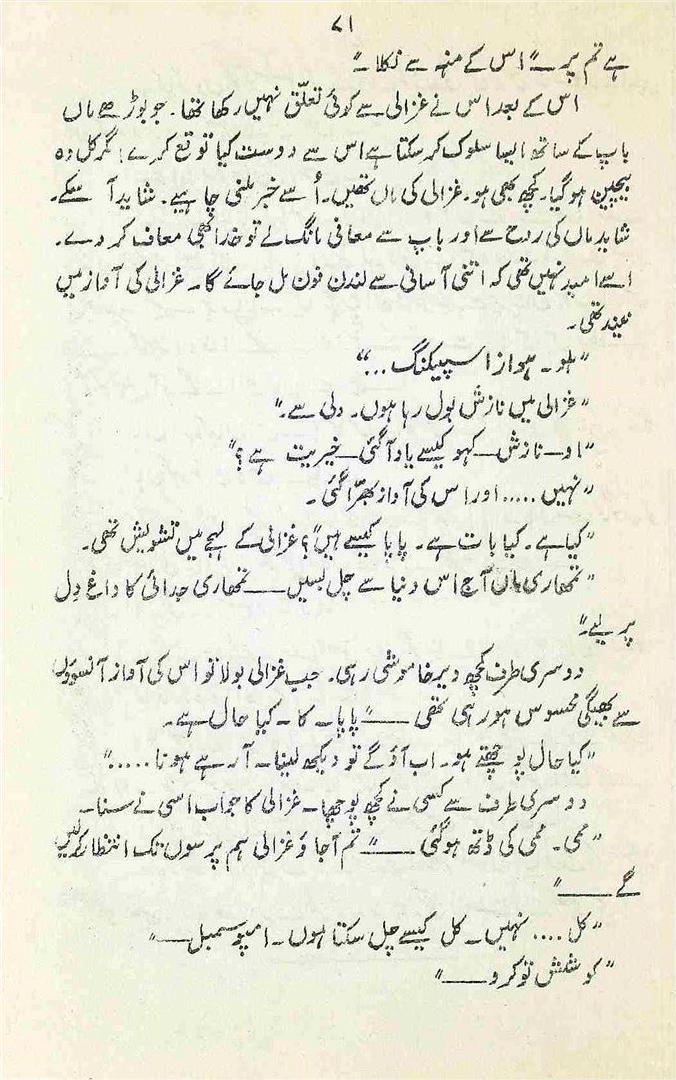 ۷۱
ہے تم پر ــ" اس کے منہ سے نکلا ــ"
اس کے بعد اس نے غزالی سے کوئی تعلّق نہیں رکھا تھا۔ جو بوڑھے ماں
باپ کے ساتھ ایسا سلوک کر سکتا ہے اس سے دوست کیا توقع کرے! مگر کل وہ
بیچین ہو گیا۔ کچھ بھی ہو۔ غزالی کی ماں تھیں۔ اُسے خبر ملنی چاہیے۔ شاید آ سکے۔
شاید ماں کی روح سے اور باپ سے معافی مانگ لے تو خدا بھی معاف کر دے۔
اسے امید نہیں تھی کہ اتنی آسانی سے لندن فون مل جائے گا۔ غزالی کی آواز میں
نیند تھی۔
"ہلو۔ ہواز اسپیکنگ ..."
"غزالی میں نازش بول رہا ہوں۔ دلی سے۔"
"او ــ نازش ــ کہو کیسے یاد آ گئی ــ خیریت ہے؟"
"نہیں ..... اور اس کی آواز بھرّا گئی۔
"کیا ہے۔ کیا بات ہے۔ پاپا کیسے ہیں"؟ غزالی کے لہجے میں تشویش تھی۔
"تمھاری ماں آج اس دنیا سے چل بسیں ــــ تمھاری جدائی کا داغ دِل
پر لیے۔"
دوسری طرف کچھ دیر خاموشی رہی۔ جب غزالی بولا تو اس کی آواز آنسوؤں
سے بھیگی محسوس ہو رہی تھی ــــ "پاپا۔ کا۔ کیا حال ہے۔
"کیا حال پوچھتے ہو۔ اب آؤ گے تو دیکھ لینا۔ آ رہے ہو نا ....."
دوسری طرف سے کسی نے کچھ پوچھا۔ غزالی کا جواب اسی نے سنا۔
"ممی۔ ممی کی ڈتھ ہو گئی ــــ" تم آ جاؤ غزالی ہم پرسوں تک انتظار کر لیں
گے ــــ"
"کل .... نہیں۔ کل کیسے چل سکتا ہوں۔ امپوسمبل ــــ"
"کوشش تو کرو ــــ"